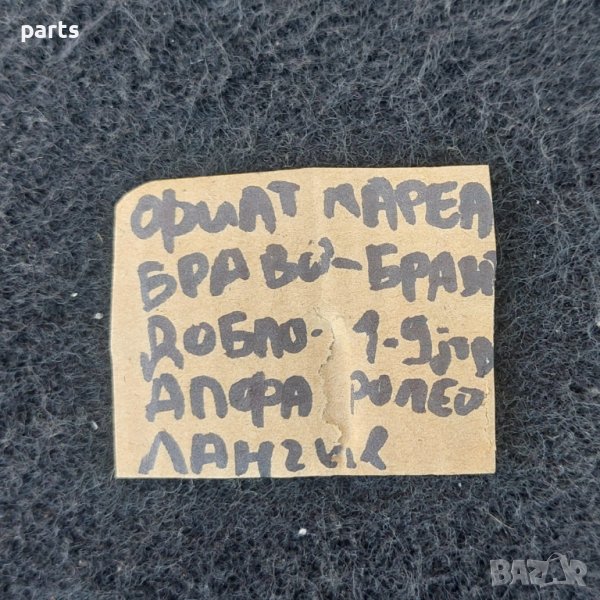 parts
ФИАТ МАРЕА
БРАВО-БРАВ
ДОБЛО-1.9JTD
АЛФА РОМЕО
ЛАНЧИЯ
BAZAR